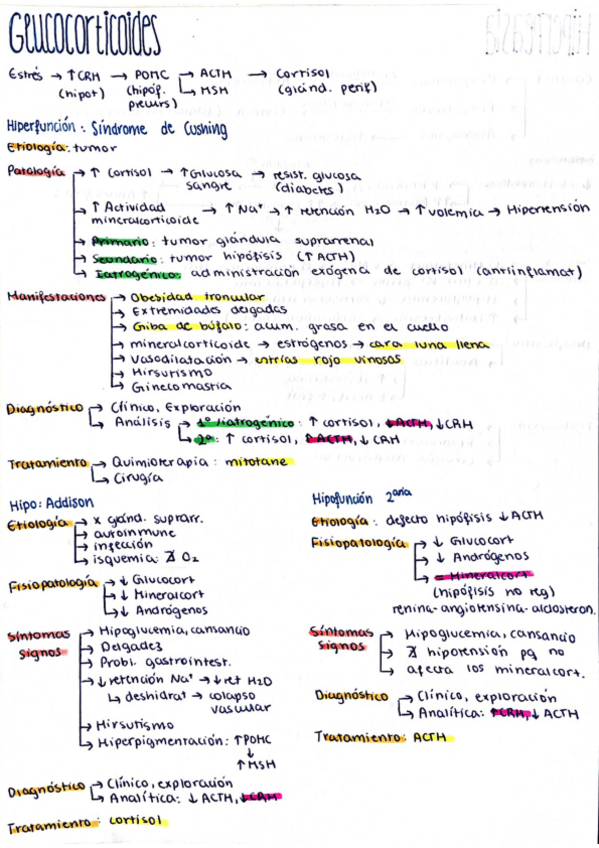 Glucocorticoides
Estrés → ↑CRH → POMC → ACTH → Cortisol
(hipot) (hipóf. ↳ MSH (gland. perif)
precurs)
Hiperfunción: Síndrome de Cushing
Etiología: tumor
Patología → ↑ Cortisol → ↑Glucosa → resist. glucosa
sangre (diabetes)
→ ↑ Actividad → ↑ Na⁺ → ↑ retención H₂O → ↑ volemia → Hipertensión
mineralcorticoide
→ Primario: tumor glándula suprarrenal
→ Secundario: tumor hipófisis (↑ACTH)
→ Iatrogénico: administración exógena de cortisol (antiinflamat)
Manifestaciones → Obesidad troncular
→ Extremidades delgadas
→ Giba de búfalo: acum. grasa en el cuello
→ mineralcorticoide → estrógenos → cara luna llena
→ Vasodilatación → estrías rojo vinosas
→ Hirsutismo
→ Ginecomastia
Diagnóstico → Clínico, Exploración
→ Análisis → 1º/iatrogénico: ↑ cortisol, ↓ACTH, ↓CRH
→ 2º: ↑ cortisol, ↑ACTH, ↓ CRH
Tratamiento → Quimioterapia: mitotane
→ Cirugía
Hipo: Addison
Etiología → x gland. suprarr.
→ autoinmune
→ infección
→ isquemia: ∄ O₂
Fisiopatología → ↓ Glucocort
→ ↓ Mineralcort
→ ↓ Andrógenos
Síntomas → Hipoglucemia, cansancio
Signos → Delgadez
→ Probl. gastrointest.
→ ↓ retención Na⁺ → ↓ ret H₂O
↳ deshidrat → colapso
vascular
→ Hirsutismo
→ Hiperpigmentación: ↑POMC
↓
↑MSH
Diagnóstico → Clínico, exploración
→ Analítica: ↓ ACTH, ↓CRH
Tratamiento: cortisol
Hipofunción 2aria
Etiología: defecto hipófisis ↓ ACTH
Fisiopatología → ↓ Glucocort
→ ↓ Andrógenos
→ = Mineralcort
(hipófisis no reg)
renina-angiotensina-aldosteron.
Síntomas → Hipoglucemia, cansancio
Signos → ∄ hipotensión pq no
→ afecta los mineralcort.
Diagnóstico → Clínico, exploración
→ Analítica: ↑CRH, ↓ ACTH
Tratamiento: ACTH